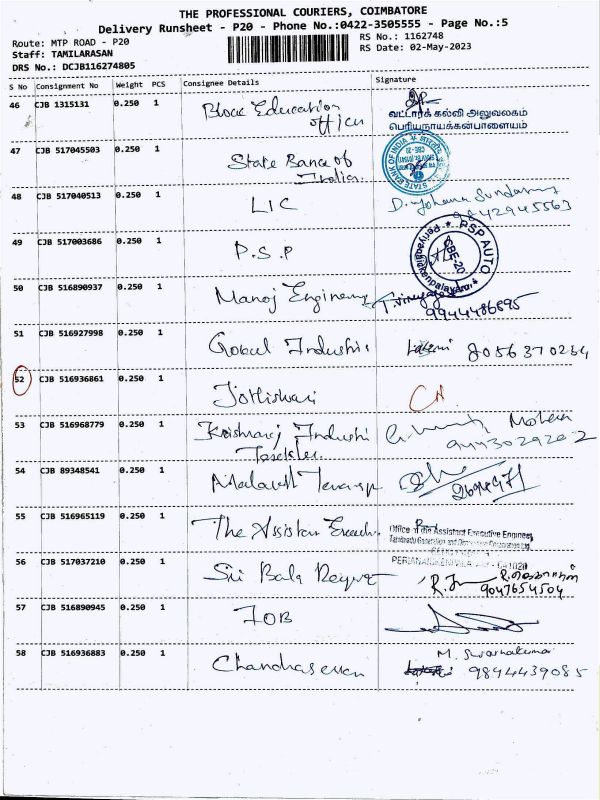 THE PROFESSIONAL COURIERS, COIMBATORE
Delivery Runsheet - P20 - Phone No.:0422-3505555 - Page No.:5
Route: MTP ROAD - P20
RS No.: 1162748
Staff: TAMILARASAN
RS Date: 02-May-2023
DRS No.: DCJB116274805
S No Consignment No Weight PCS Consignee Details Signature
46 CJB 1315131 0.250 1 Block Education
officer
வட்டாரக் கல்வி அலுவலகம்
பெரியநாயக்கன்பாளையம்
47 CJB 517045503 0.250 1 State Bance of
India
STATE BANK OF INDIA
48 CJB 517040513 0.250 1 LIC
9842945563
49 CJB 517003686 0.250 1 P.S.P
PSP AUTO
CBE-20
50 CJB 516890937 0.250 1 Manoj Engineering
9944486895
51 CJB 516927998 0.250 1 Gokul Industris 8056370234
52 CJB 516936861 0.250 1 Jothiswari
53 CJB 516968779 0.250 1 Krishnaraj Industri Mohan
9443029202
54 CJB 89348541 0.250 1
55 CJB 516965119 0.250 1 The Assistan
Office of the Assistant Executive Engineer,
56 CJB 517037210 0.250 1 Sri Bala
9047654504
57 CJB 516890945 0.250 1 JOB
58 CJB 516936883 0.250 1 Chandraseran
M. Swarnakumar
9844439085